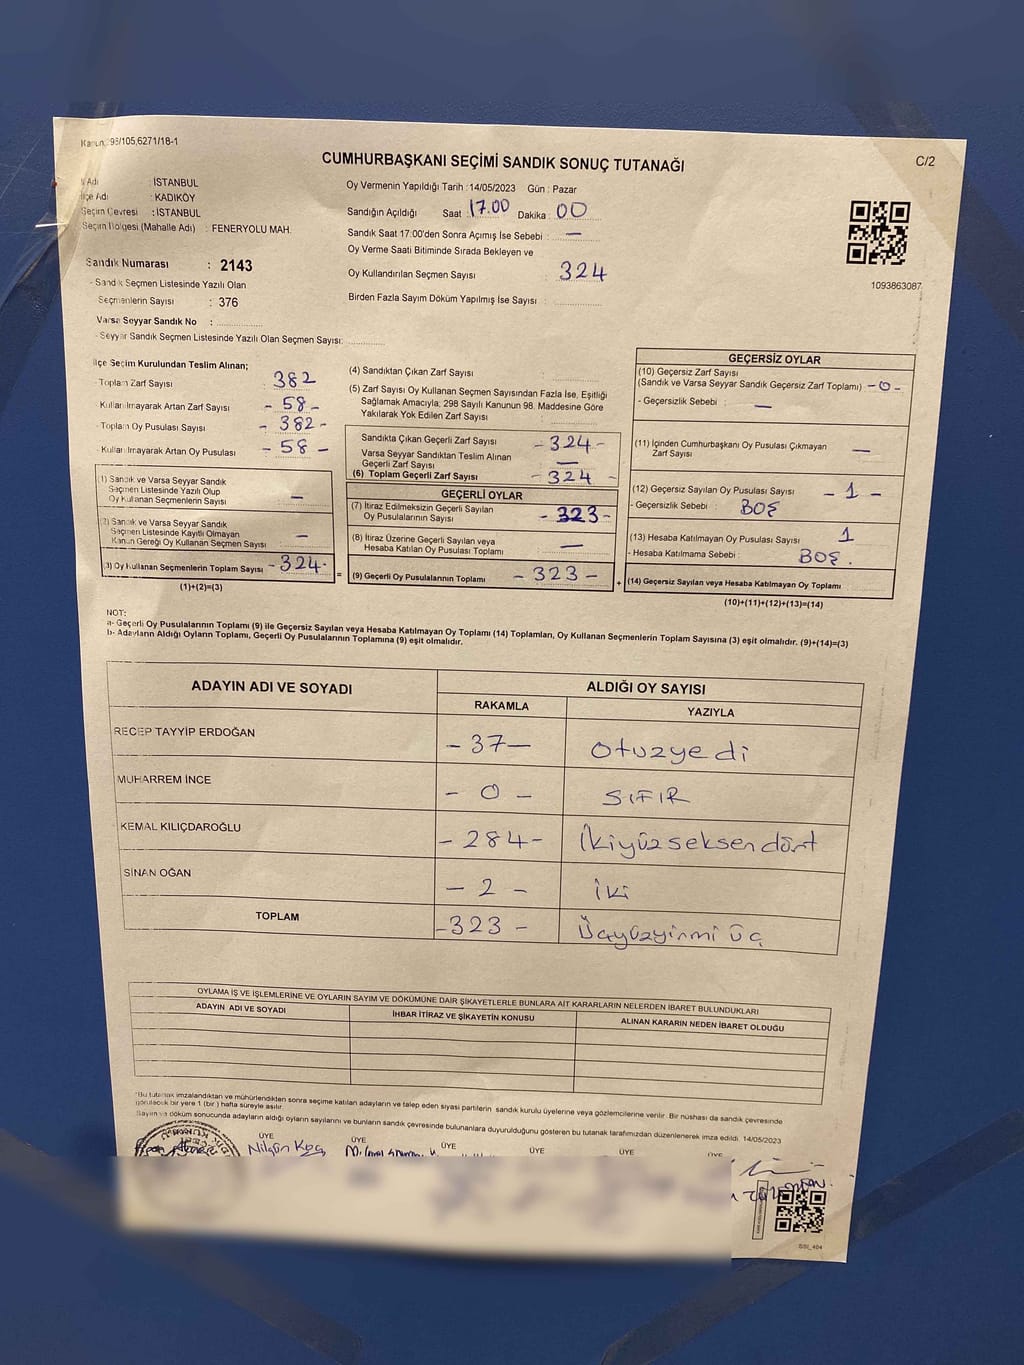 Kanun: 98/105,6271/18-1
CUMHURBAŞKANI SEÇİMİ SANDIK SONUÇ TUTANAĞI
C/2
Adı : İSTANBUL
İlçe Adı : KADIKÖY
Seçim Çevresi : İSTANBUL
Seçim Bölgesi (Mahalle Adı) : FENERYOLU MAH.
Sandık Numarası : 2143
- Sandık Seçmen Listesinde Yazılı Olan
Seçmenlerin Sayısı : 376
Varsa Seyyar Sandık No :
- Seyyar Sandık Seçmen Listesinde Yazılı Olan Seçmen Sayısı:
Oy Vermenin Yapıldığı Tarih : 14/05/2023 Gün : Pazar
Sandığın Açıldığı Saat 17.00 Dakika : 00
Sandık Saat 17:00'den Sonra Açımış İse Sebebi : —
Oy Verme Saati Bitiminde Sırada Bekleyen ve
Oy Kullandırılan Seçmen Sayısı : 324
Birden Fazla Sayım Döküm Yapılmış İse Sayısı :
1093863087
İlçe Seçim Kurulundan Teslim Alınan;
- Toplam Zarf Sayısı : 382
- Kullanılmayarak Artan Zarf Sayısı - 58 -
- Toplam Oy Pusulası Sayısı - 382 -
- Kullanılmayarak Artan Oy Pusulası - 58 -
(1) Sandık ve Varsa Seyyar Sandık
Seçmen Listesinde Yazılı Olup
Oy Kullanan Seçmenlerin Sayısı —
(2) Sandık ve Varsa Seyyar Sandık
Seçmen Listesinde Kayıtlı Olmayan
Kanun Gereği Oy Kullanan Seçmen Sayısı —
(3) Oy Kullanan Seçmenlerin Toplam Sayısı - 324 -
(1)+(2)=(3)
(4) Sandıktan Çıkan Zarf Sayısı :
(5) Zarf Sayısı Oy Kullanan Seçmen Sayısından Fazla İse, Eşitliği
Sağlamak Amacıyla, 298 Sayılı Kanunun 98. Maddesine Göre
Yakılarak Yok Edilen Zarf Sayısı :
Sandıkta Çıkan Geçerli Zarf Sayısı - 324 -
Varsa Seyyar Sandıktan Teslim Alınan
Geçerli Zarf Sayısı —
(6) Toplam Geçerli Zarf Sayısı - 324 -
GEÇERLİ OYLAR
(7) İtiraz Edilmeksizin Geçerli Sayılan
Oy Pusulalarının Sayısı - 323 -
(8) İtiraz Üzerine Geçerli Sayılan veya
Hesaba Katılan Oy Pusulası Toplamı —
(9) Geçerli Oy Pusulalarının Toplamı - 323 -
GEÇERSİZ OYLAR
(10) Geçersiz Zarf Sayısı
(Sandık ve Varsa Seyyar Sandık Geçersiz Zarf Toplamı) - 0 -
- Geçersizlik Sebebi : —
(11) İçinden Cumhurbaşkanı Oy Pusulası Çıkmayan
Zarf Sayısı —
(12) Geçersiz Sayılan Oy Pusulası Sayısı - 1 -
- Geçersizlik Sebebi : BOŞ
(13) Hesaba Katılmayan Oy Pusulası Sayısı 1
- Hesaba Katılmama Sebebi : BOŞ.
(14) Geçersiz Sayılan veya Hesaba Katılmayan Oy Toplamı
(10)+(11)+(12)+(13)=(14)
NOT:
a- Geçerli Oy Pusulalarının Toplamı (9) ile Geçersiz Sayılan veya Hesaba Katılmayan Oy Toplamı (14) Toplamları, Oy Kullanan Seçmenlerin Toplam Sayısına (3) eşit olmalıdır. (9)+(14)=(3)
b- Adayların Aldığı Oyların Toplamı, Geçerli Oy Pusulalarının Toplamına (9) eşit olmalıdır.
ADAYIN ADI VE SOYADI
ALDIĞI OY SAYISI
RAKAMLA
YAZIYLA
RECEP TAYYİP ERDOĞAN - 37 — otuzyedi
MUHARREM İNCE - 0 - SIFIR
KEMAL KILIÇDAROĞLU - 284 - İkiyüzseksendört
SİNAN OĞAN - 2 - iki
TOPLAM - 323 - Üçyüzyirmi üç
OYLAMA İŞ VE İŞLEMLERİNE VE OYLARIN SAYIM VE DÖKÜMÜNE DAİR ŞİKAYETLERLE BUNLARA AİT KARARLARIN NELERDEN İBARET BULUNDUKLARI
ADAYIN ADI VE SOYADI
İHBAR İTİRAZ VE ŞİKAYETİN KONUSU
ALINAN KARARIN NEDEN İBARET OLDUĞU
*Bu tutanak imzalandıktan ve mühürlendikten sonra seçime katılan adayların ve talep eden siyasi partilerin sandık kurulu üyelerine veya gözlemcilerine verilir. Bir nüshası da sandık çevresinde
görülecek bir yere 1 (bir) hafta süreyle asılır.
Sayım ve döküm sonucunda adayların aldığı oyların sayılarını ve bunların sandık çevresinde bulunanlara duyurulduğunu gösteren bu tutanak tarafımızdan düzenlenerek imza edildi. 14/05/2023
ÜYE ÜYE ÜYE ÜYE ÜYE
Nilgün Koç